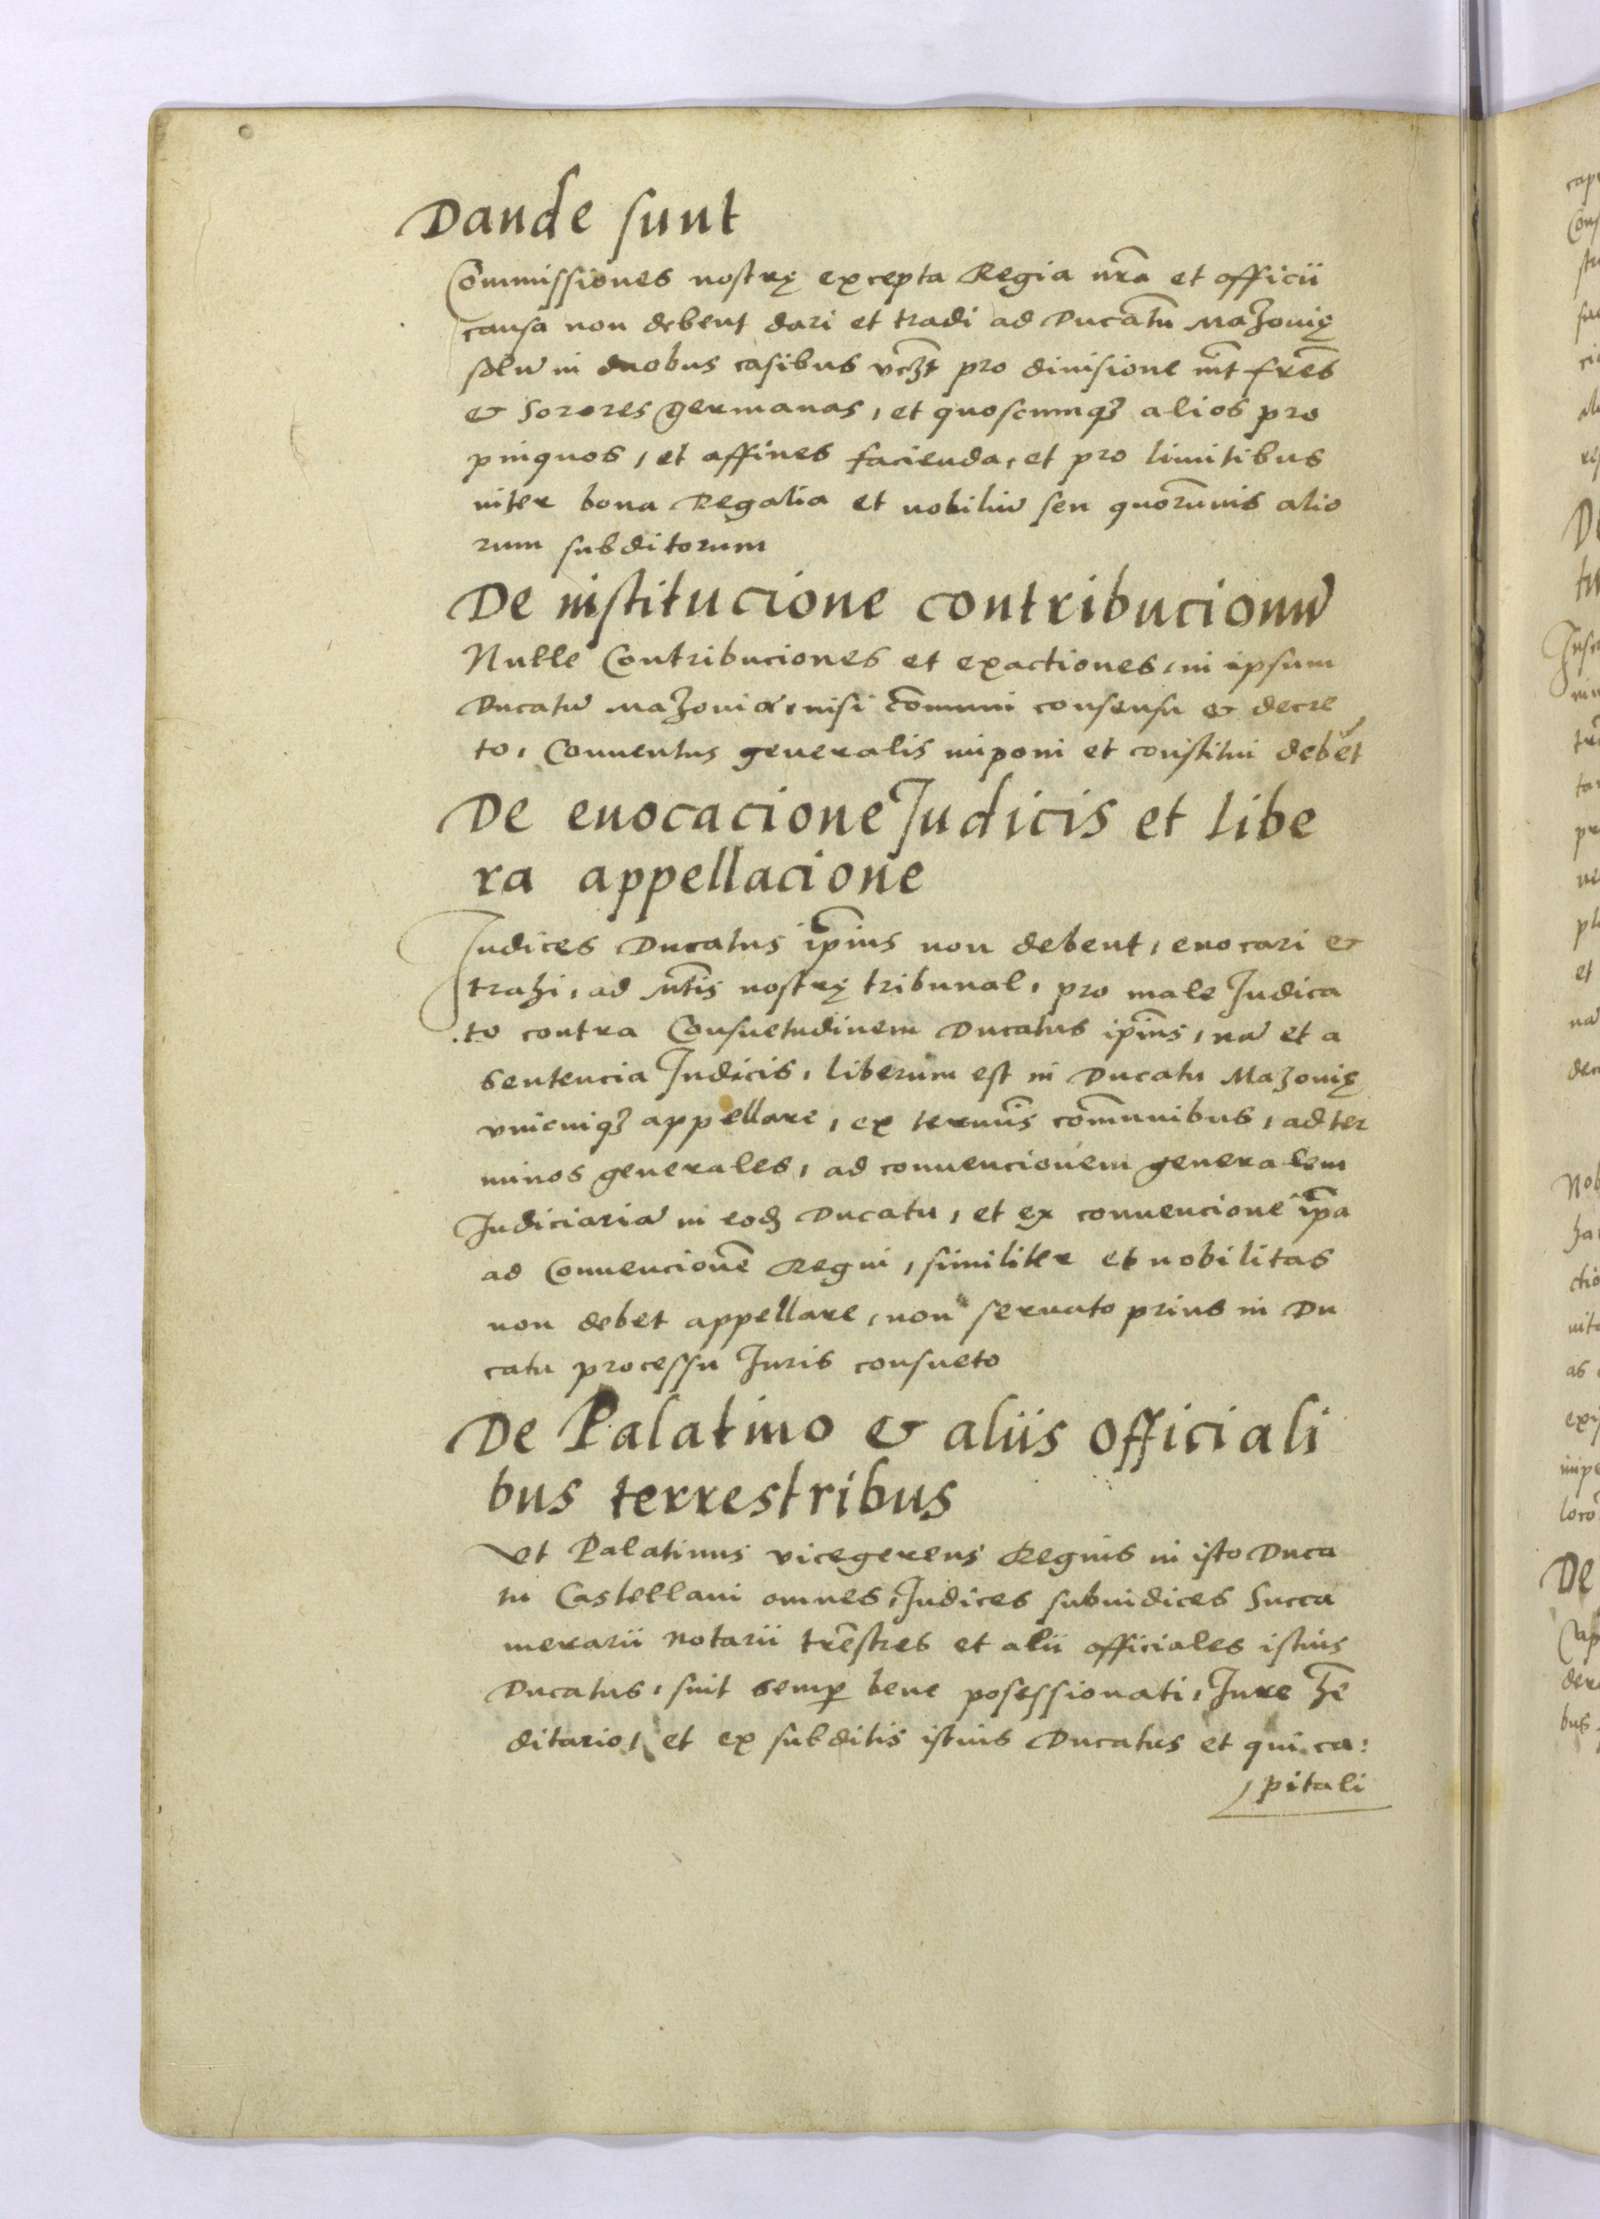 Dande sunt
Commissiones nostrę excepta Regia nr̃a et officii
causa non debent dari et tradi ad Ducatũ Mazovię
solũ in duobus casibus vczt pro divisione int̃ fr̃es
& Sorores germanas, et quoscumqz alios pro
pinquos, et affines facienda, et pro limitibus
inter bona Regalia et nobiliũ seu quorũvis alio
rum subditorum
De institucione contribucionũ
Nulle Contribuciones et exactiones, in ipsum
Ducatũ Mazoviæ, nisi cõmuni consensu & decre
to, Conventus generalis imponi et constitui debẽt
De evocacione Judicis et libe
ra appellacione
Judices Ducatus ip̃ius non debent, evocari &
trahi, ad Mt̃is nostrę tribunal, pro male Judica
to contra Consuetudinem Ducatus ip̃ius, nã et a
sentencia Judicis, liberum est in Ducatu Mazovię
vnicuiqz appellare, ex termĩs cõmunibus, ad ter
minos generales, ad convencionem generalem
Judiciariã in eodz Ducatu, et ex convencione ip̃a
ad Convencionẽ Regni, similiter et nobilitas
non debet appellare, non servato prius in Du
catu processu Juris consueto
De Palatino & aliis officiali
bus terrestribus
Vt Palatinus vicegerens Regius in isto Duca
tu Castellani omnes, Judices subiudices Succa
merarii notarii trẽstres et alii officiales istius
Ducatus, sint semp̱ bene posessionati, Jure hẽ
ditario, et ex subditis istius Ducatus et qui ca:
pitali